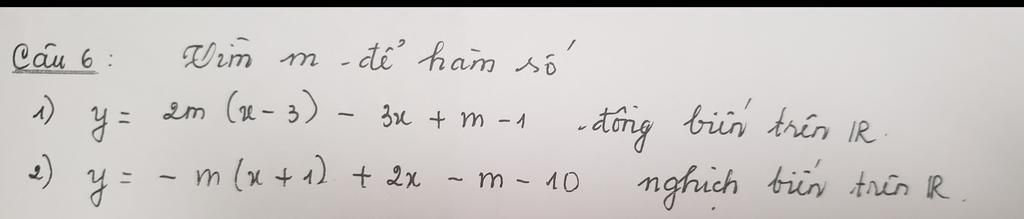 Câu 6 : Tìm m để hàm số
1) y = 2m (x - 3) - 3x + m - 1 đồng biến trên R.
2) y = - m (x + 1) + 2x - m - 10 nghịch biến trên R.